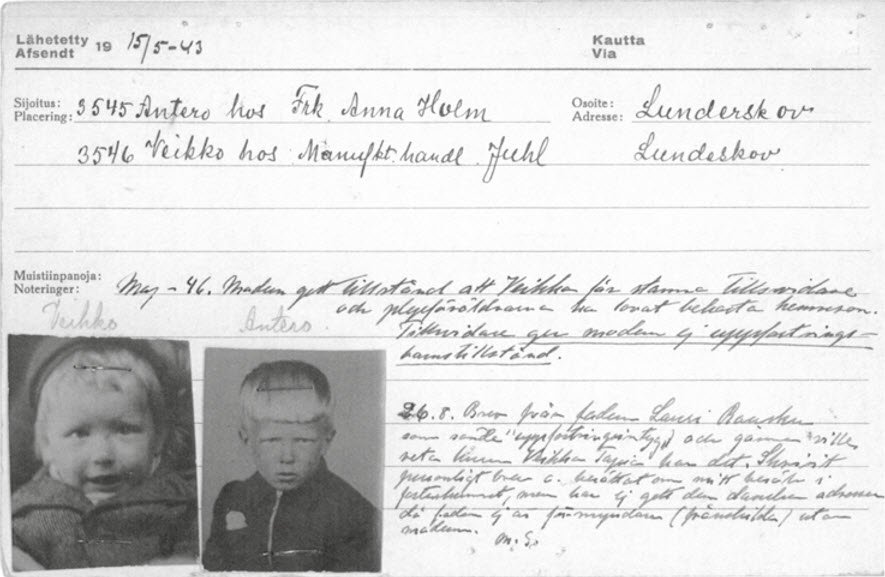 Lähetetty
Afsendt 19 15/5-43
Kautta
Via
Sijoitus:
Placering: 3545 Antero hos Frk. Anna Holm
Osoite:
Adresse: Lunderskov
3546 Veikko hos Manufkt. handl. Juhl Lundeskov
Muistiinpanoja:
Noteringer: Maj - 46. Modern gett tillstånd att Veikko får stanna tillsvidare
och plejeföräldrarna ha lovat bekosta hemreson.
Tillsvidare ger modern ej uppfostrings-
barnstillstånd.
Veikko Antero
26.8. Brev från fadern Lauri
som sände "uppfostringsintyg" och gärna ville
veta hur Veikko har det. Skrivit
personligt brev o. berättat om mitt besök i
fosterhemmet, men har ej gett den danska adressen
då fadern ej är förmyndare (frånskilda) utan
modern. M.S.